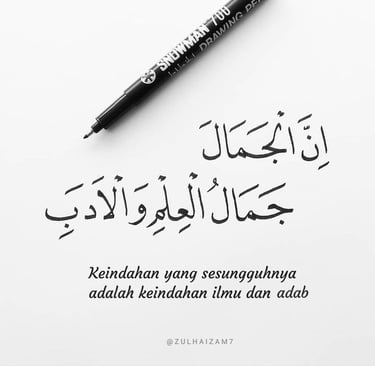 SNOWMAN 700
DRAWING PEN
اِنَّ الْجَمَالَ
جَمَالُ الْعِلْمِ وَالْاَدَبِ
Keindahan yang sesungguhnya
adalah keindahan ilmu dan adab
@ZULHAIZAM7